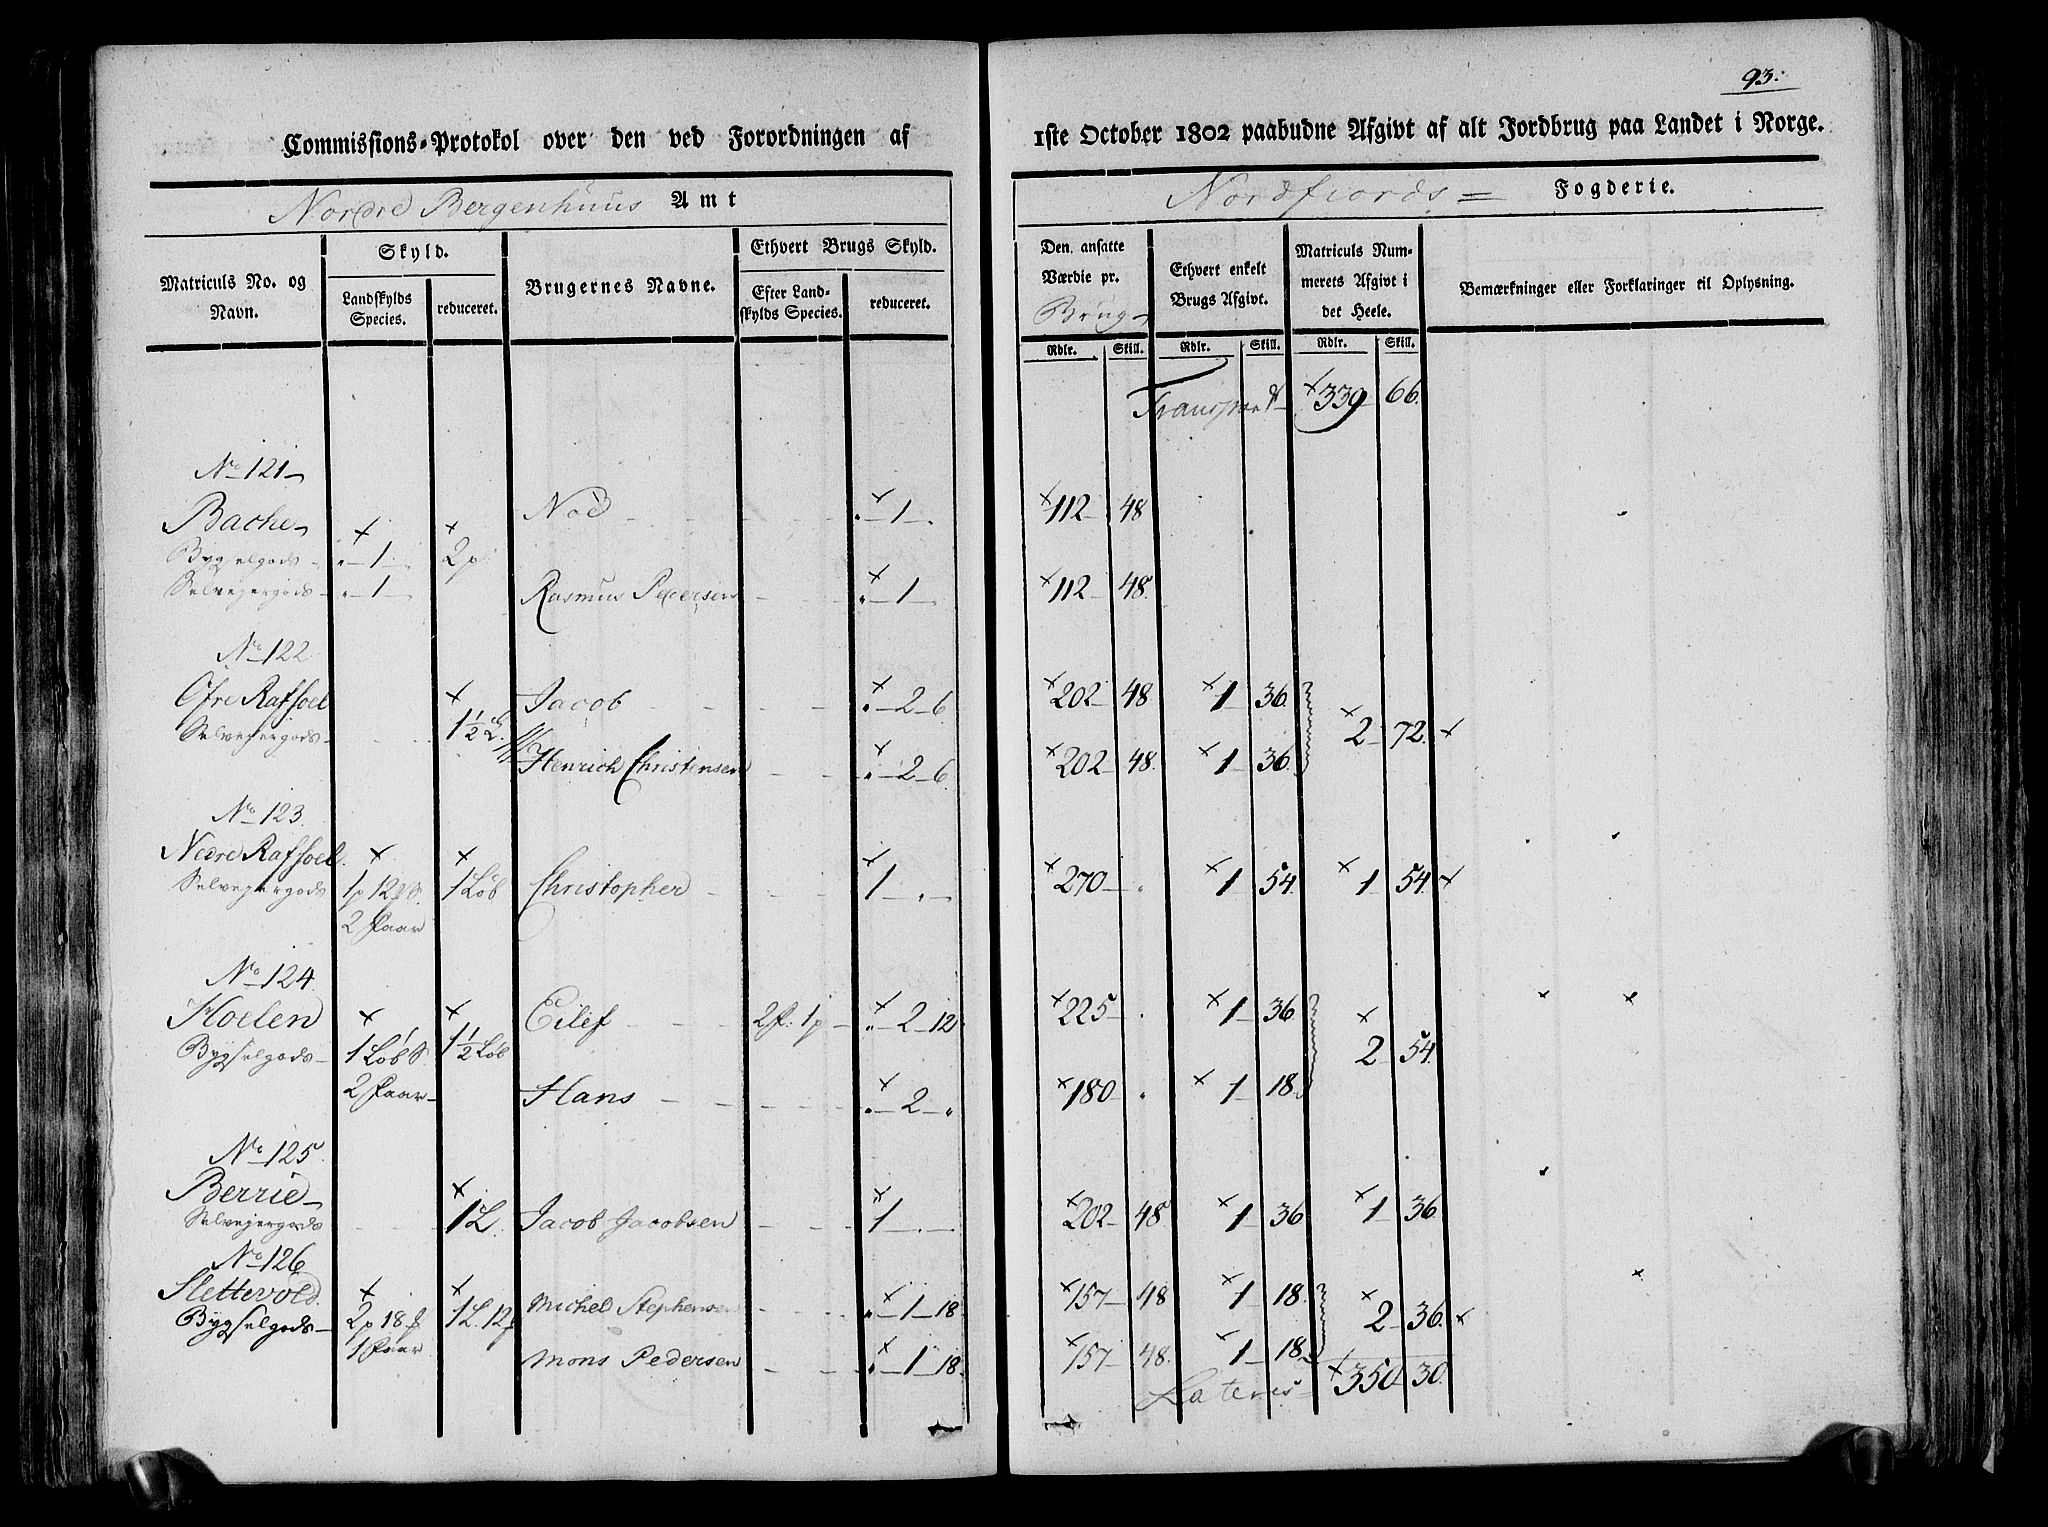 93.
Commissions-Protokol over den ved Forordningen af 1ste October 1802 paabudne Afgivt af alt Jordbrug paa Landet i Norge.
Nordre Bergenhuus Amt
Nordfiords Fogderie.
Matriculs No. og Navn.
Skyld.
Landskylds Species.
reduceret.
Brugernes Navne.
Ethvert Brugs Skyld.
Efter Landskylds Species.
reduceret.
Den ansatte Værdie pr. Brug
Ethvert enkelt Brugs Afgivt.
Matriculs Nummerets Afgivt i det Heele.
Bemærkninger eller Forklaringer til Oplysning.
Rdlr. Skill. Rdlr. Skill. Rdlr. Skill.
Transport 339 66.
No 121
Bache Nod 1 112 48
Bygselgods 1 2p
Selvejergods 1 Rasmus Pedersen 1 112 48.
No 122.
Øfre Rafsoel Jacob 2 6 202 48 1 36.
Selvejergods 1½ L. 2 72.
Henrich Christensen 2 6 202 48. 1 36.
No 123.
Nedre Rafsoel
Selvejergods 1p 12 1 Løb Christopher 1 270 1 54. 1 54.
2 Faar
No 124.
Hoelen Eilef 2 f: 1p 2 12 225 1 36
Bygselgods 1 Løb 1½ Løb 2 54.
2 Faar Hans 2 180 1 18.
No 125.
Berrie
Selvejergods 1 L. Jacob Jacobsen 1 202 48 1 36 1 36
No 126
Slettevold Michel Stephensen 1 18 157 48 1 18.
Bygselgods 2p 18 1 L. 12 2 36.
1 Faar Mons Pedersen 1 18. 157 48. 1 18.
Lateris 350 30.